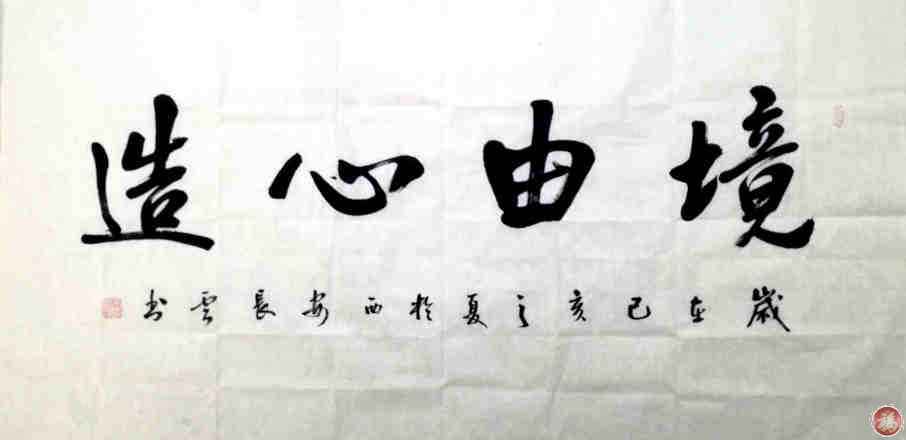 境由心造
歲在己亥之夏於西安長雲书